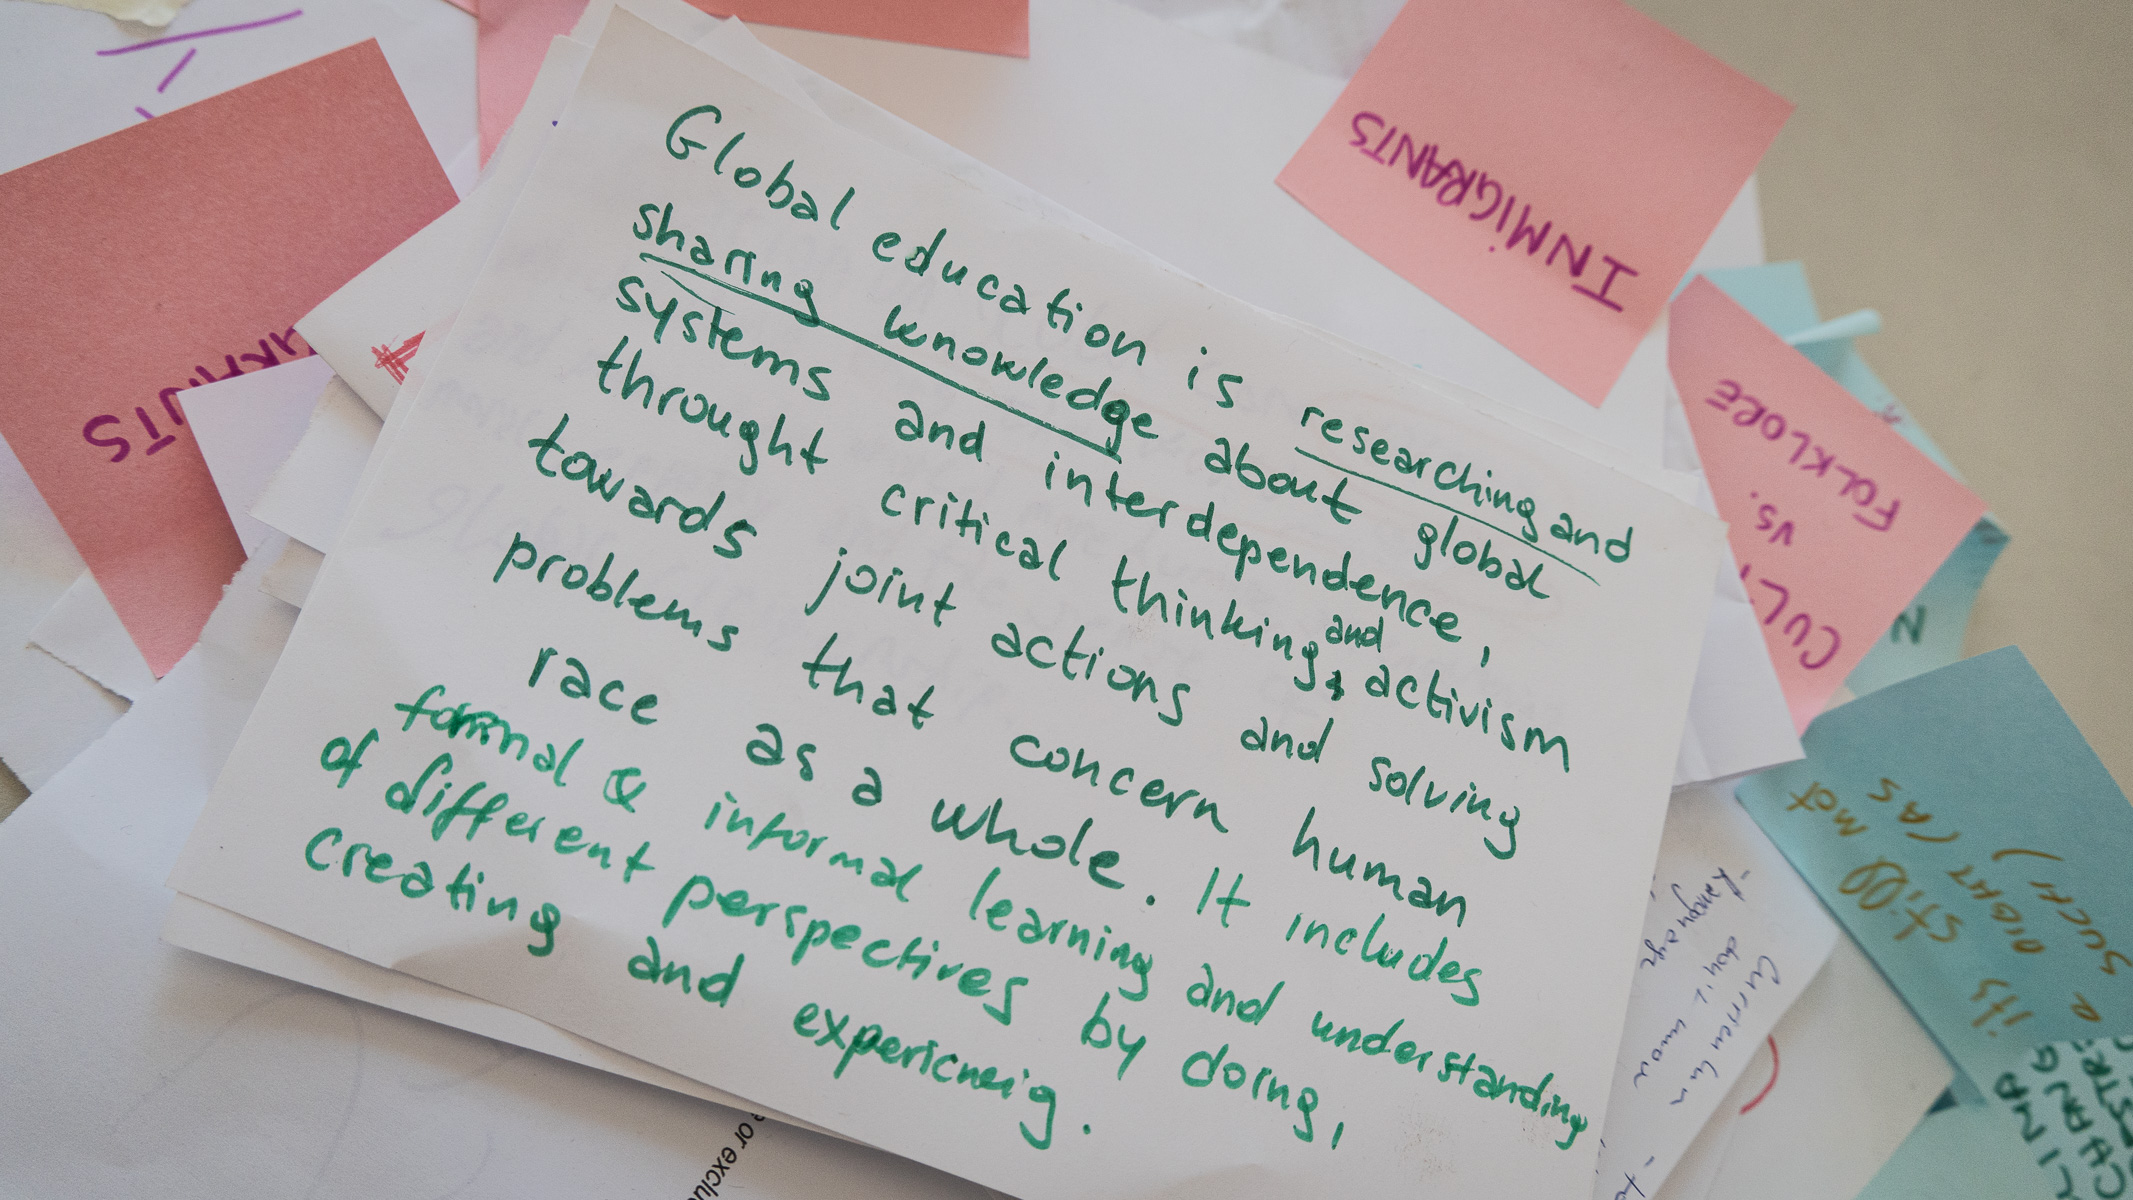 Global education is researching and
sharing knowledge about global
systems and interdependence,
throught critical thinking and activism
towards joint actions and solving
problems that concern human
race as a whole. It includes
formal & informal learning and understanding
of different perspectives by doing,
creating and expericneig.
INMIGRANTS
FOLKLORE
vs.
CULT
N
still not
RIGHT (AS
SUCH)
it's
Curriculum
or exclu